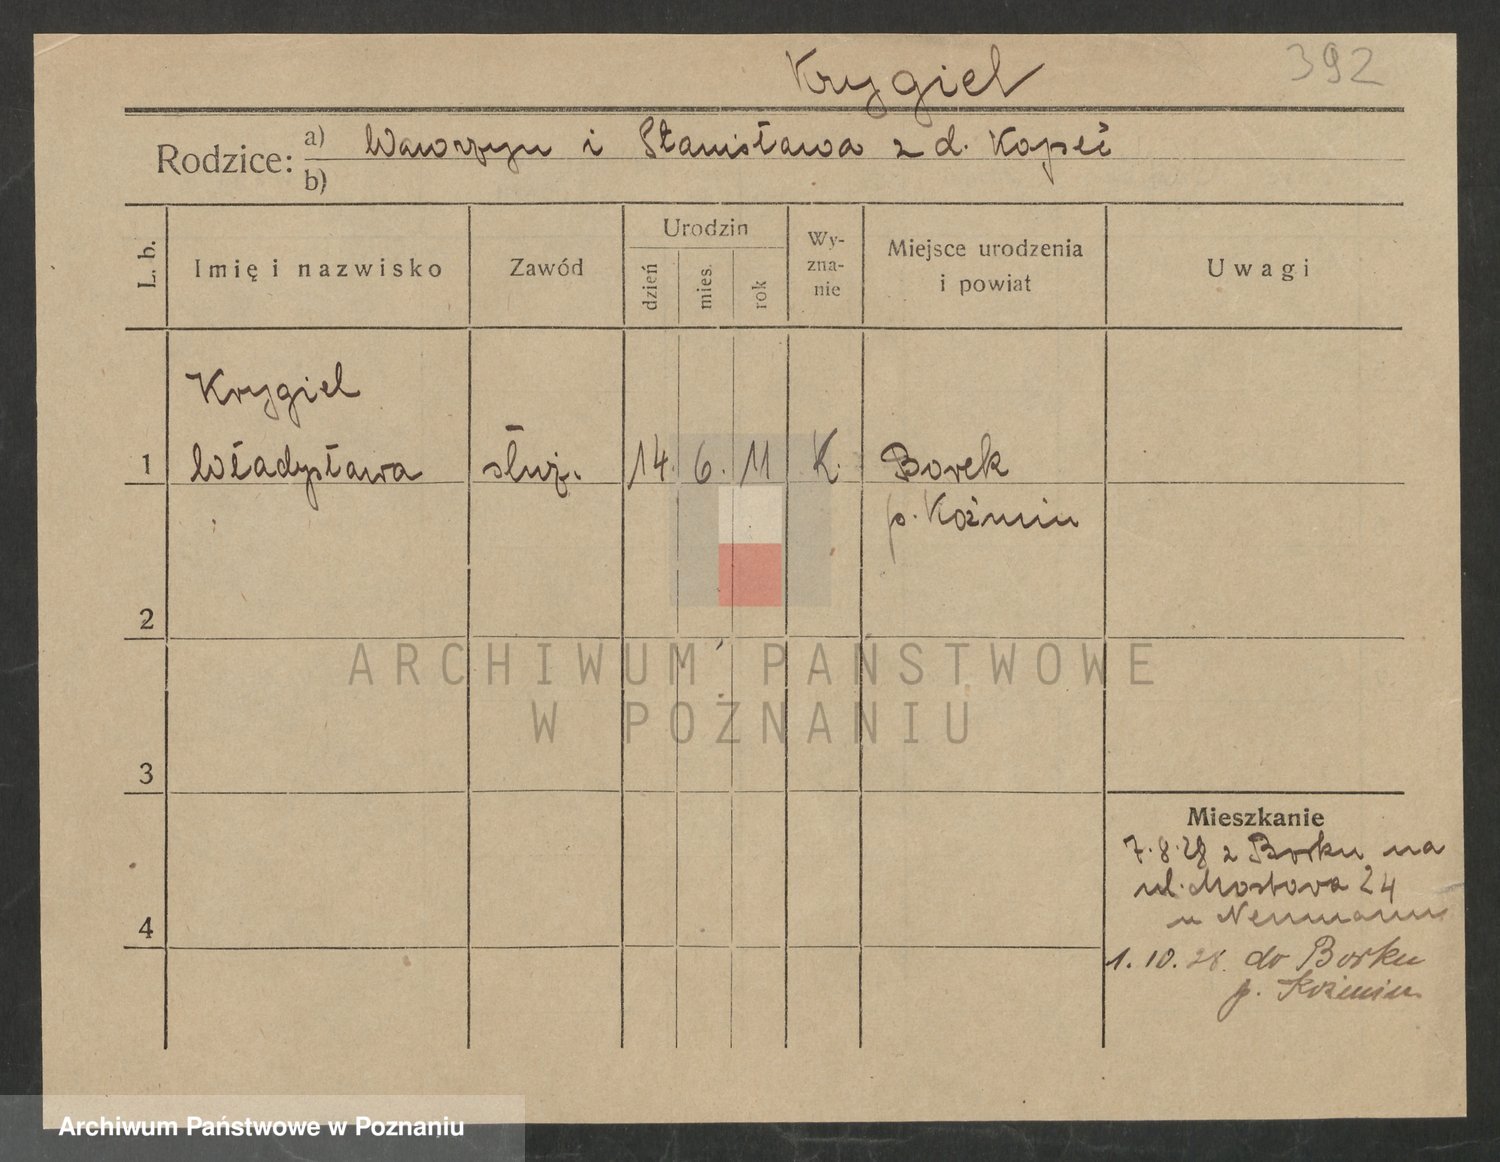 Krygiel
392
Rodzice: a) Wawrzyn i Stanisława z d. Kopeć
b)
L. b.
Imię i nazwisko
Zawód
Urodzin
dzień
mies.
rok
Wy-
zna-
nie
Miejsce urodzenia
i powiat
Uwagi
Krygiel
1 Władysława służ. 14. 6. 11 K. Borek
p. Koźmin
2
ARCHIWUM PAŃSTWOWE
W POZNANIU
3
Mieszkanie
7.8.28 z Borku na
ul. Mostova 24
4
u Neumann
1.10.28. do Borku
p. Koźmin
Archiwum Państwowe w Poznaniu